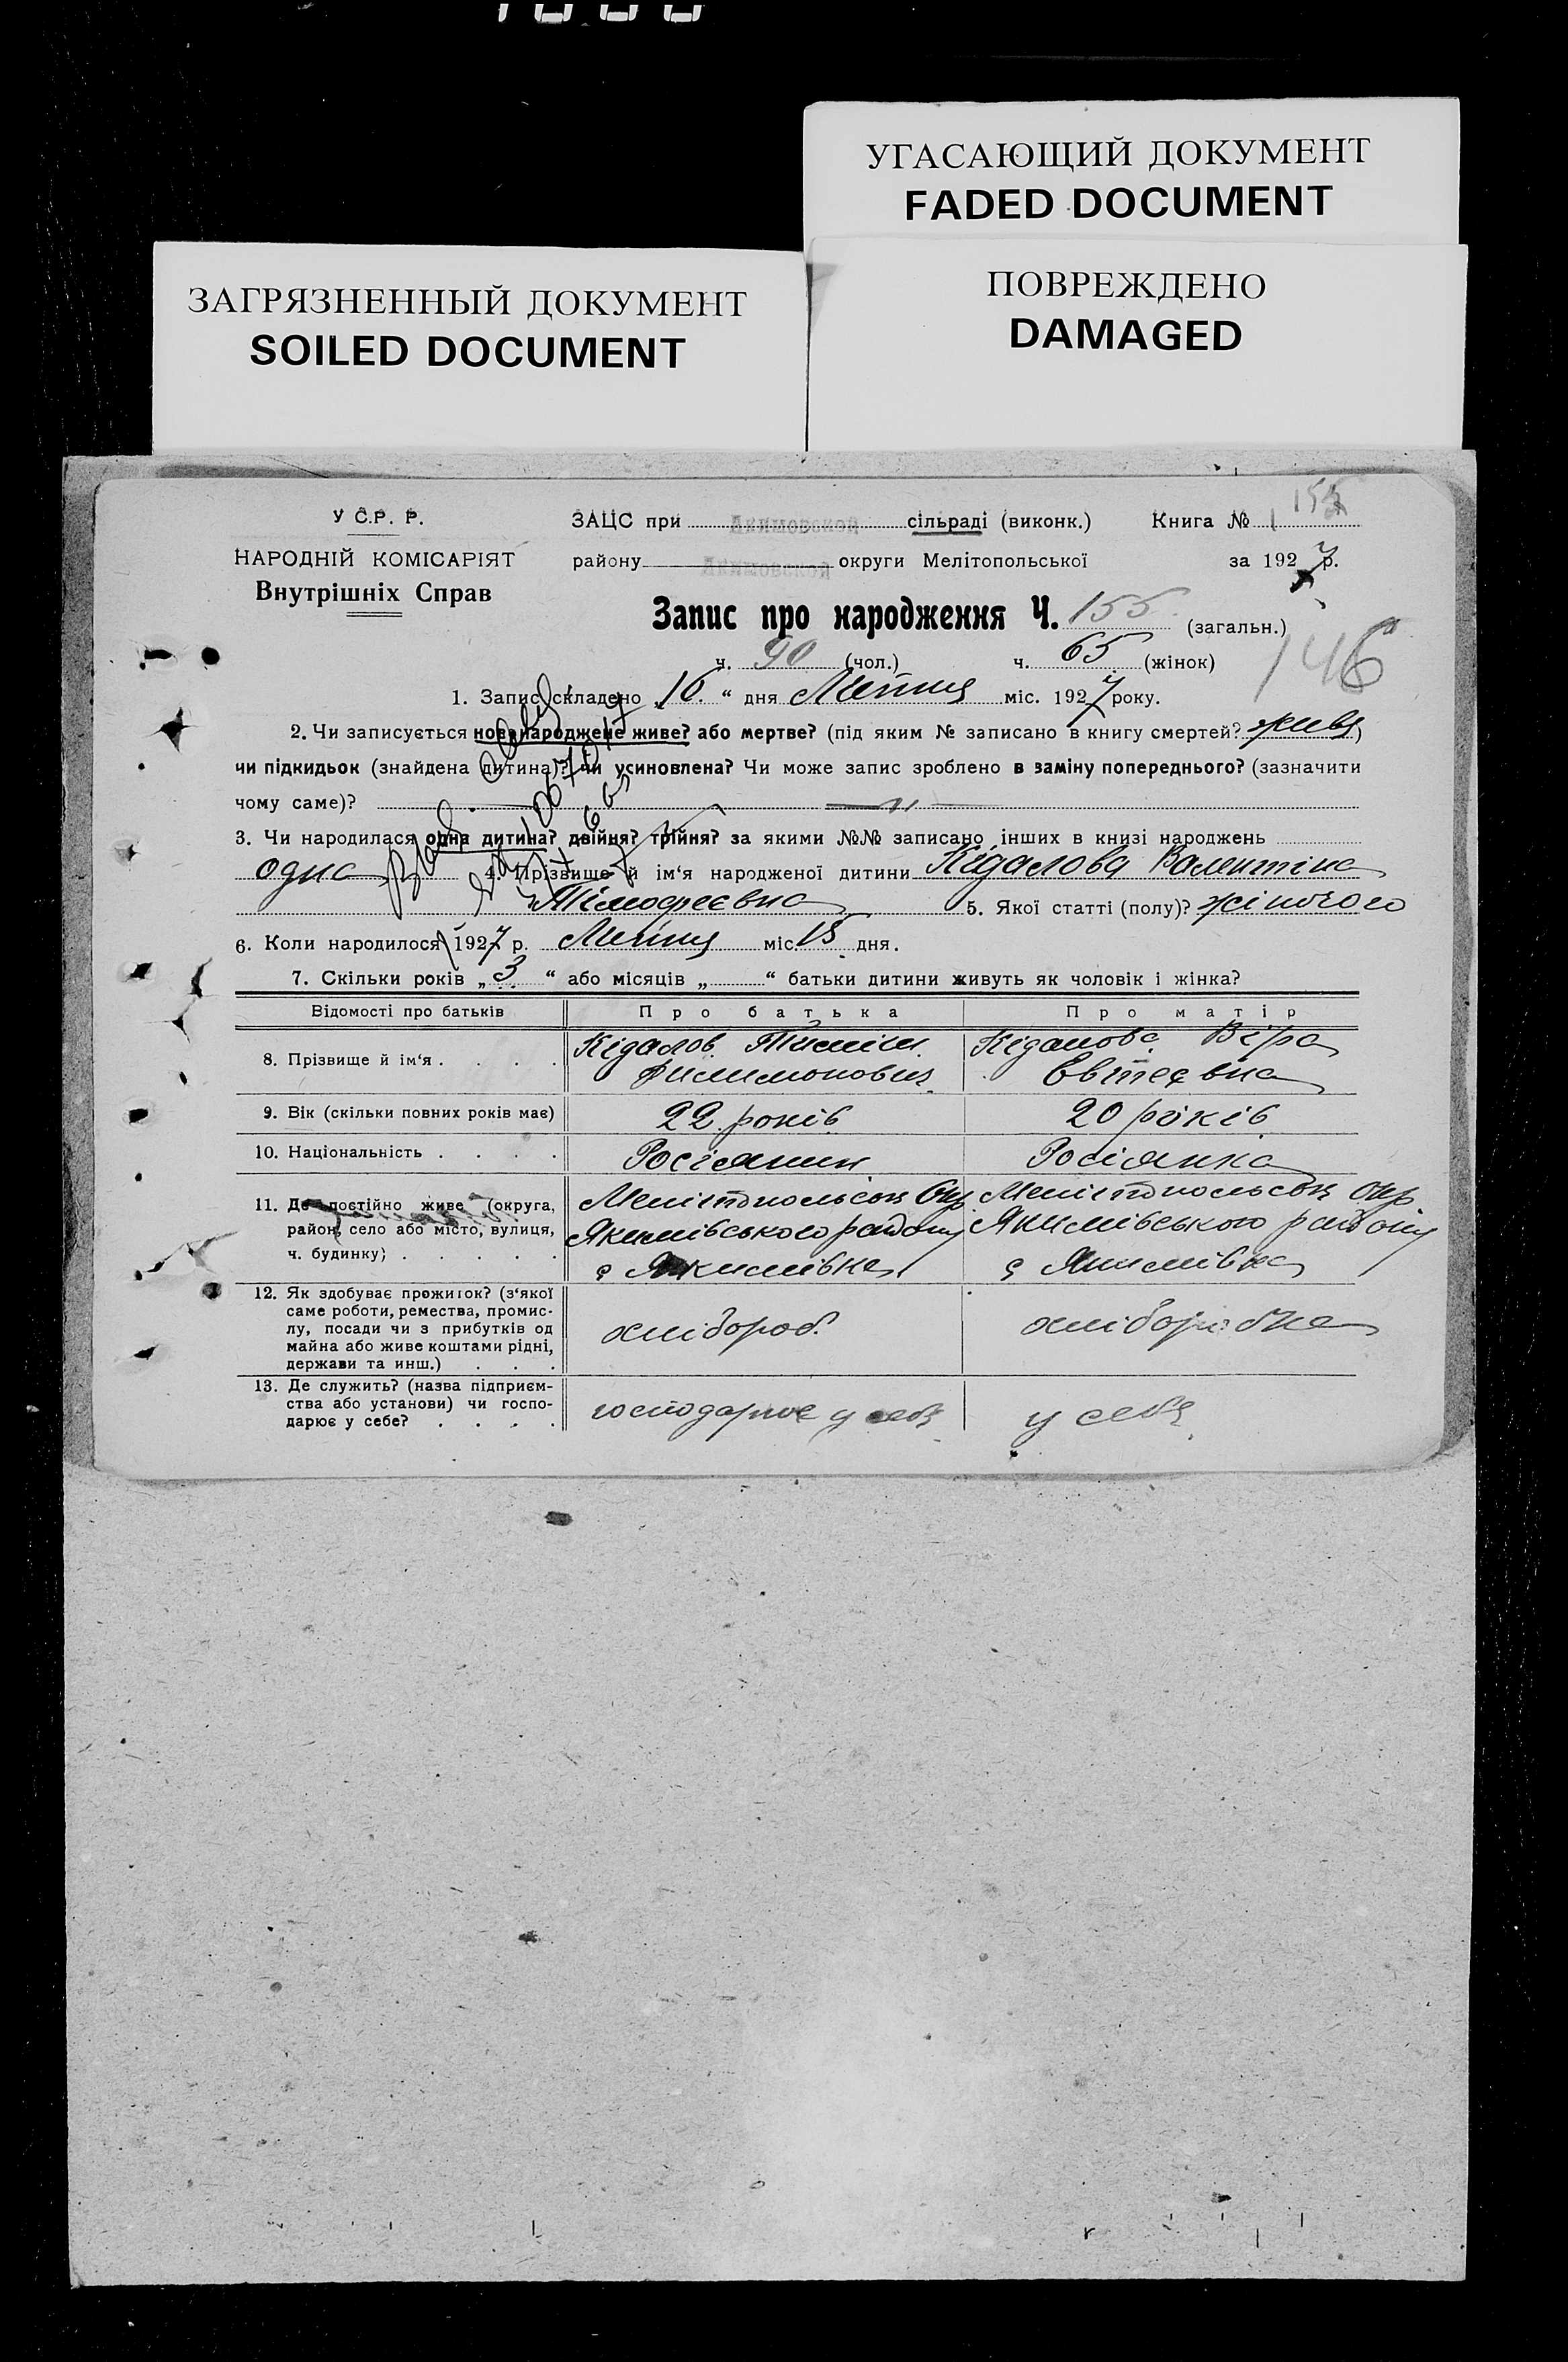 УГАСАЮЩИЙ ДОКУМЕНТ
FADED DOCUMENT
ЗАГРЯЗНЕННЫЙ ДОКУМЕНТ
SOILED DOCUMENT
ПОВРЕЖДЕНО
DAMAGED
У С.Р. Р.
НАРОДНІЙ КОМІСАРІЯТ
Внутрішніх Справ
ЗАЦС при Акимовской сільраді (виконк.) Книга № 155
району Акимовской округи Мелітопольської за 1927 р.
Запис про народження Ч. 155 (загальн.)
146
ч. 90 (чол.) ч. 65 (жінок)
1. Запис складено „16“ дня Липня міс. 1927 року.
2. Чи записується новонароджене живе? або мертве? (під яким № записано в книгу смертей? живе)
чи підкидьок (знайдена дитина)? чи усиновлена? Чи може запис зроблено в заміну попереднього? (зазначити
чому саме)? — " —
3. Чи народилася одна дитина? двійня? трійня? за якими №№ записано інших в книзі народжень
одна 4. Прізвище й ім'я народженої дитини Кідалова Валентіна
Тімофеєвна 5. Якої статті (полу)? жіночого
6. Коли народилося 1927 р. Липня міс. 15 дня.
7. Скільки років „3“ або місяців „ “ батьки дитини живуть як чоловік і жінка?
Відомості про батьків Про батька Про матір
8. Прізвище й ім'я . . . . Кідалов Тиміш Филимонович Кідалова Віра Евтеевна
9. Вік (скільки повних років має) 22 років 20 років
10. Національність . . . . Росіянин Росіянка
11. Де постійно живе (округа, Мелітопольськ Окр Мелітопольськ Окр
район, село або місто, вулиця, Якимівського району Якимівського району
ч. будинку) . . . . . с Якимівка с Якимівка
12. Як здобуває прожиток? (з'якої
саме роботи, ремества, промис-
лу, посади чи з прибутків од хлібороб. хліборобка
майна або живе коштами рідні,
держави та инш.) . . .
13. Де служить? (назва підприєм-
ства або установи) чи госпо- господарює у себе у себе
дарює у себе? . . . .